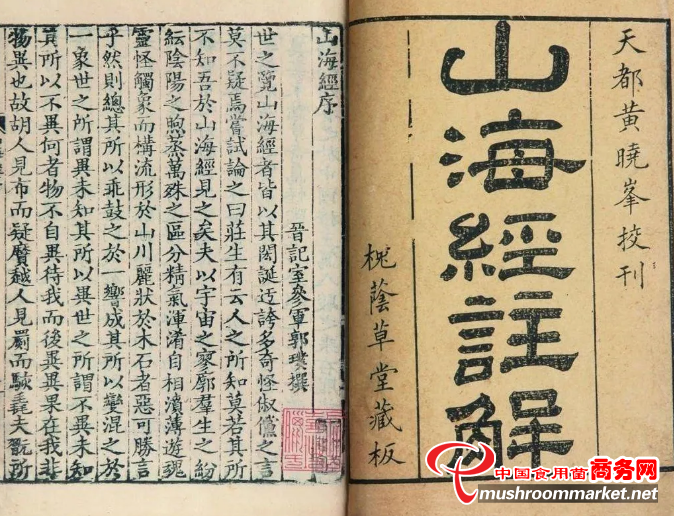 天都黄曉峯挍刊
山海經註解
槐蔭草堂藏板
山海經序
晉記室參軍郭璞撰
世之覽山海經者皆以其閎誕迂誇多奇怪俶儻之言
莫不疑焉嘗試論之曰莊生有云人之所知莫若其所
不知吾於山海經見之矣夫以宇宙之寥廓羣生之紛
紜陰陽之煦蒸萬殊之區分精氣渾淆自相濆薄遊魂
靈怪觸象而構流形於山川麗狀於木石者惡可勝言
乎然則總其所以乖鼓之於一響成其所以變混之於
一象世之所謂異未知其所以異世之所謂不異未知
其所以不異何者物不自異待我而後異異果在我非
物異也故胡人見布而疑黂越人見罽而駭毳夫翫所
中国食用菌商务网
www.mushroommarket.net